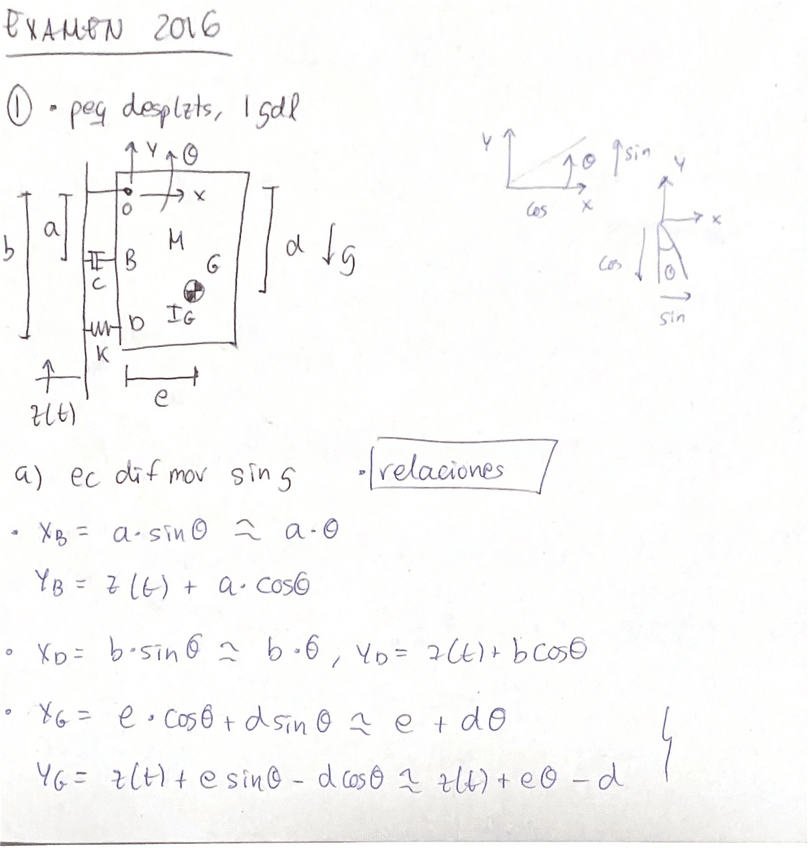 EXAMEN 2016
① • peq desplzts, 1 gdl
Y θ
x
O
b
a
M
B
G
c
d ↓g
D
IG
K
z(t)
e
Y
θ ↑sin
cos x
Y
x
cos
θ
sin
a) ec dif mov sin g • relaciones
• XB = a·sinθ ≃ a·θ
YB = z(t) + a·cosθ
• XD = b·sinθ ≃ b·θ, YD = z(t)+ b cosθ
• XG = e·cosθ + d sinθ ≃ e + dθ
YG = z(t) + e sinθ - d cosθ ≃ z(t) + eθ - d